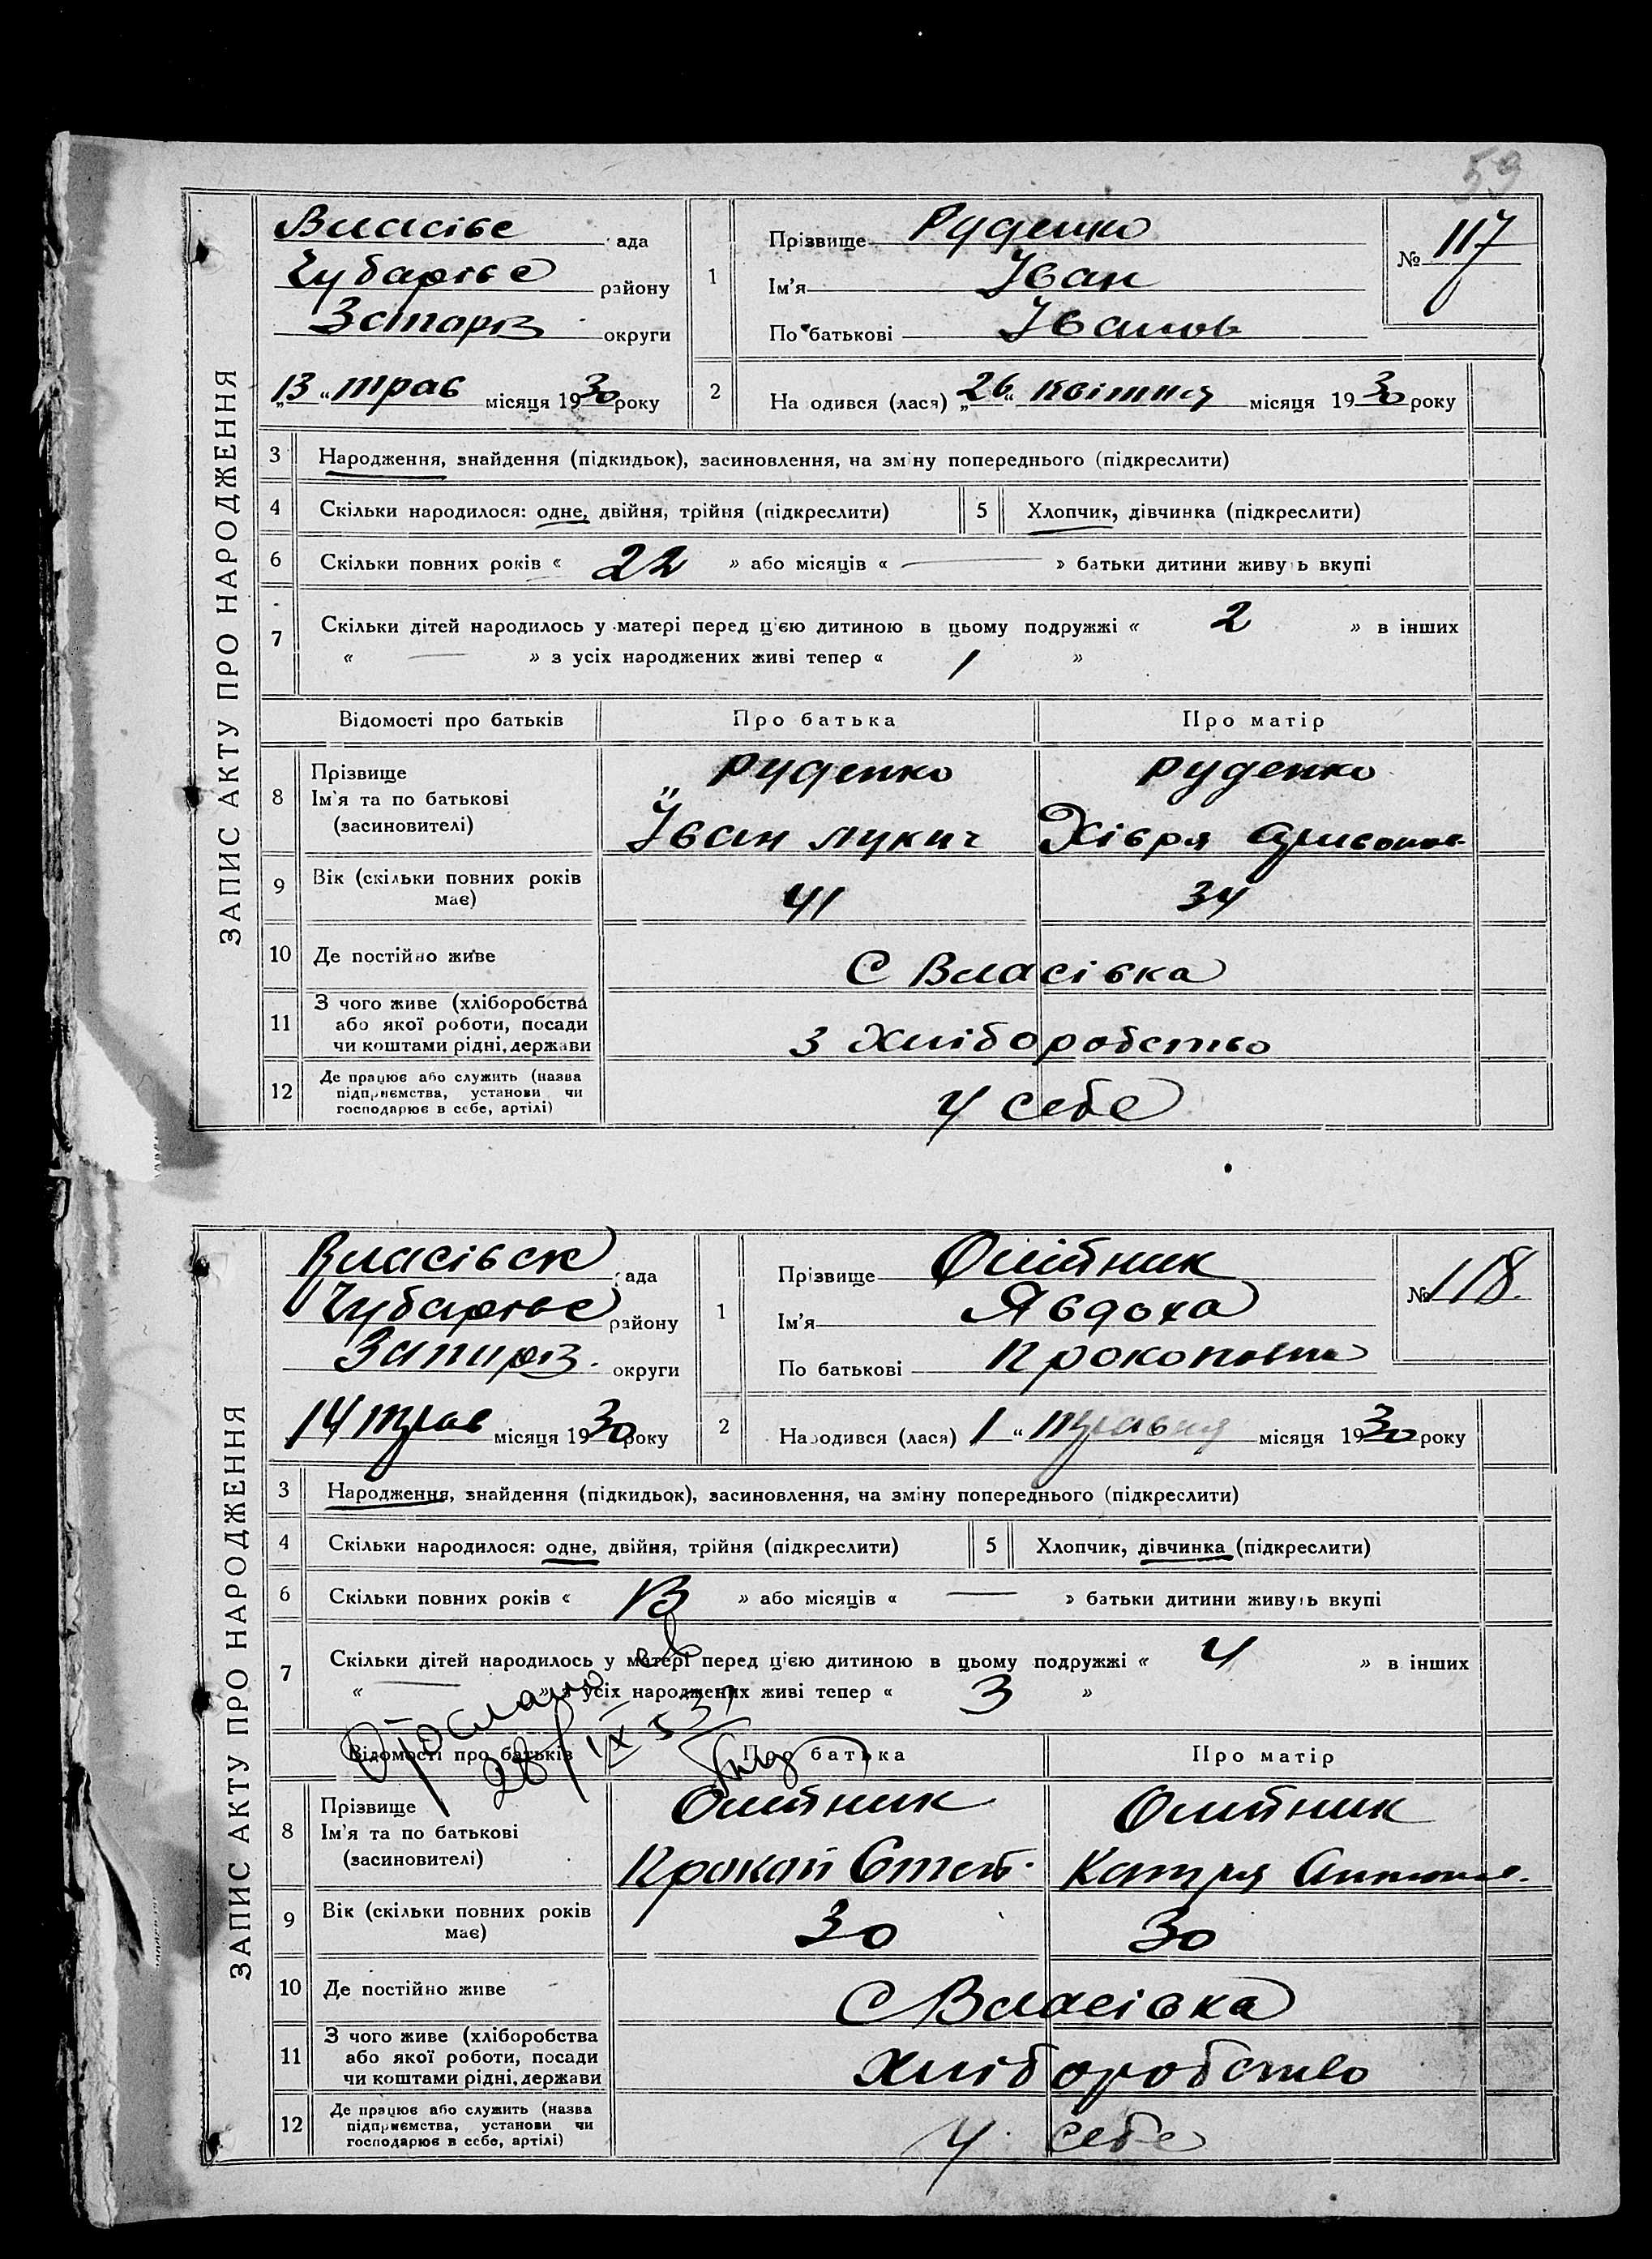 59
ЗАПИС АКТУ ПРО НАРОДЖЕННЯ
Власівс ада
Чубарівс району
округи
„13 “ трав місяця 1930 року
1
Прізвище Руденко
Ім'я Іван
По батькові Іванов
№ 117
2 На одився (лася) „26“ квітня місяця 1930 року
3 Народження, знайдення (підкидьок), засиновлення, на зміну попереднього (підкреслити)
4 Скільки народилося: одне, двійня, трійня (підкреслити) 5 Хлопчик, дівчинка (підкреслити)
6 Скільки повних років « 22 » або місяців « — » батьки дитини живуть вкупі
7 Скільки дітей народилось у матері перед цією дитиною в цьому подружжі « 2 » в інших
« — » з усіх народжених живі тепер « 1 »
Відомості про батьків Про батька Про матір
8 Прізвище Руденко Руденко
Ім'я та по батькові
(засиновителі) Іван Лукич Хівря
9 Вік (скільки повних років
має) 41 34
10 Де постійно живе С Власівка
11 З чого живе (хліборобства
або якої роботи, посади
чи коштами рідні, держави З Хліборобство
12 Де працює або служить (назва
підприємства, установи чи
господарює в себе, артілі) У себе
ЗАПИС АКТУ ПРО НАРОДЖЕННЯ
Власівськ ада
Чубарівс району
Запоріз. округи
14 трав місяця 1930 року
1
Прізвище Олійник
Ім'я Явдоха
По батькові
№ 118.
2 Народився (лася) 1 “ травня місяця 1930 року
3 Народження, знайдення (підкидьок), засиновлення, на зміну попереднього (підкреслити)
4 Скільки народилося: одне, двійня, трійня (підкреслити) 5 Хлопчик, дівчинка (підкреслити)
6 Скільки повних років « 13 » або місяців « — » батьки дитини живуть вкупі
7 Скільки дітей народилось у матері перед цією дитиною в цьому подружжі « 4 » в інших
« — » з усіх народжених живі тепер « 3 »
28/IX
Відомості про батьків Про батька Про матір
8 Прізвище Олійник Олійник
Ім'я та по батькові
(засиновителі) Прокоп Катря
9 Вік (скільки повних років
має) 30 30
10 Де постійно живе С Власівка
11 З чого живе (хліборобства
або якої роботи, посади
чи коштами рідні, держави Хліборобство
12 Де працює або служить (назва
підприємства, установи чи
господарює в себе, артілі) У себе